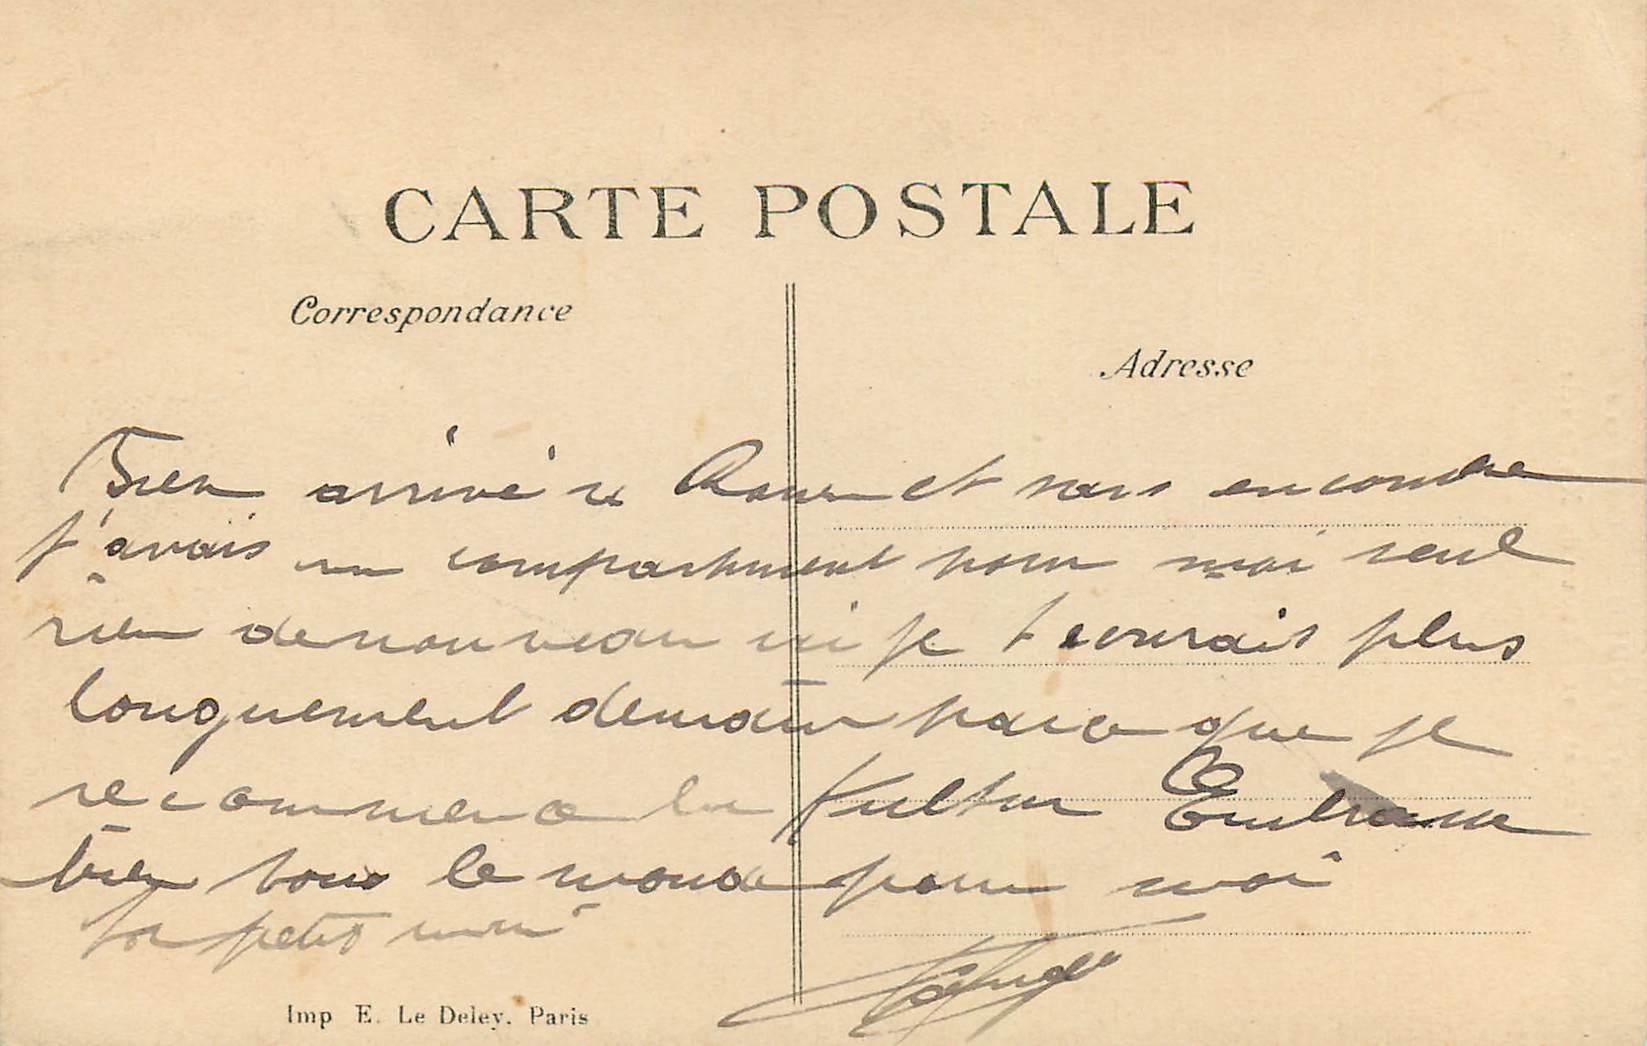 CARTE POSTALE
Correspondance
Adresse
Bien arrivé à Rouen et sans encombre
j'avais un compartiment pour moi seul
rien de nouveau ici je t'ecrirais plus
longuement demain parce que je
recommence la Kultur Embrasse
bien tous le monde pour moi
Ton petit mimi
Imp E. Le Deley. Paris